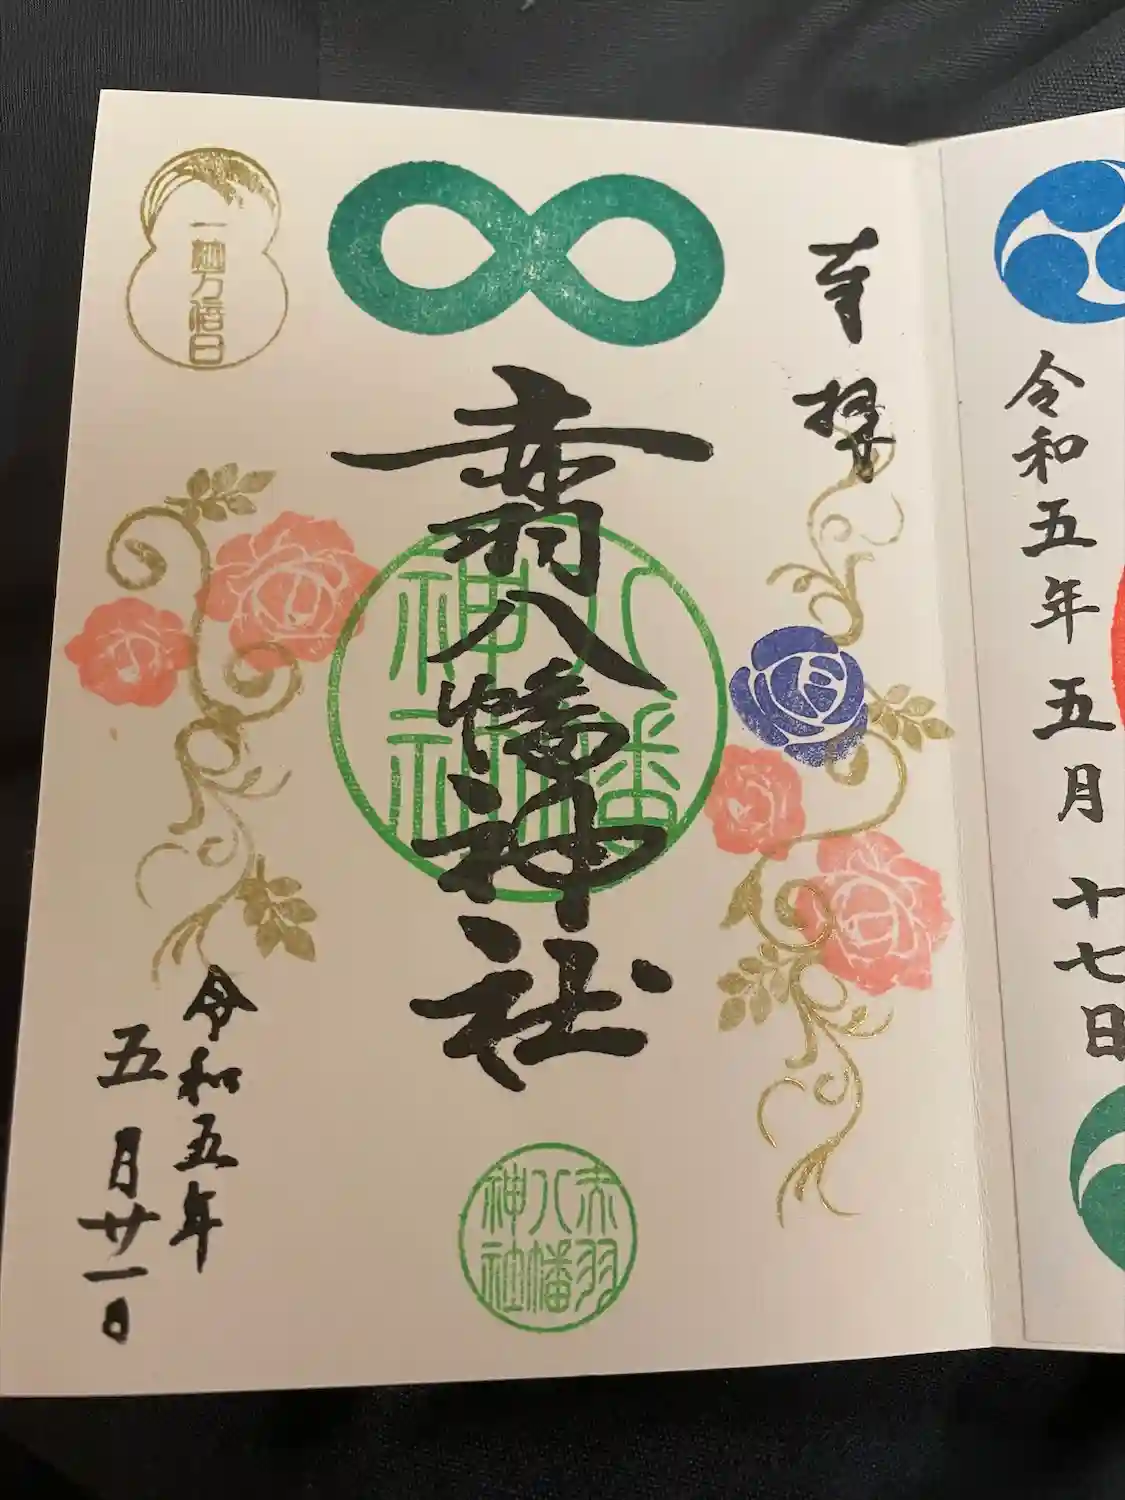 令和五年五月十七日
奉拝
赤羽八幡神社
八幡
神社
赤羽
八幡
神社
一粒万倍日
令和五年
五月廿一日